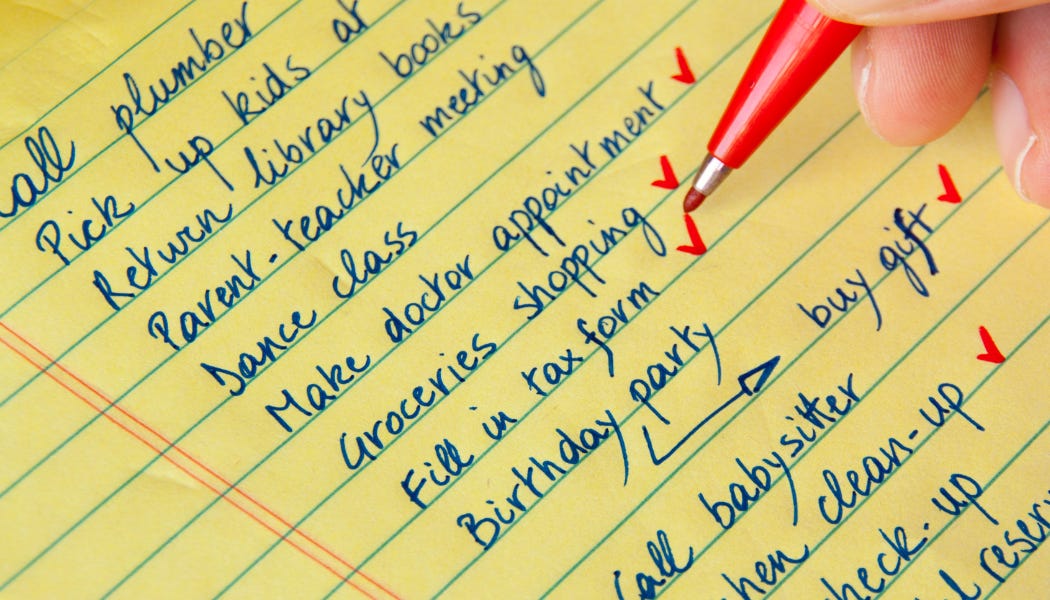 Call plumber
Pick up kids at
Return library books
Parent-teacher meeting
Dance class
Make doctor appointment
Groceries shopping
Fill in tax form
Birthday party
buy gift
Call babysitter
clean-up
check-up